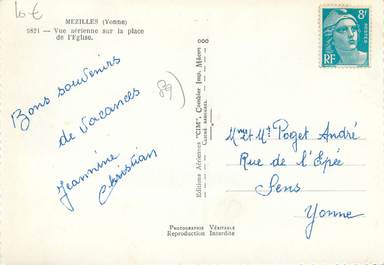 10 €
MEZILLES (Yonne)
9821 - Vue aérienne sur la place
de l'Eglise.
Bons souvenirs
de vacances
Jeannine
Christian
89)
Editions Aériennes "CIM", Combier Imp. Mâcon
PHOTOGRAPHIE VÉRITABLE
Reproduction Interdite
8F
RF
Mme et Mr Poget André
Rue de l'Epée
Sens
Yonne